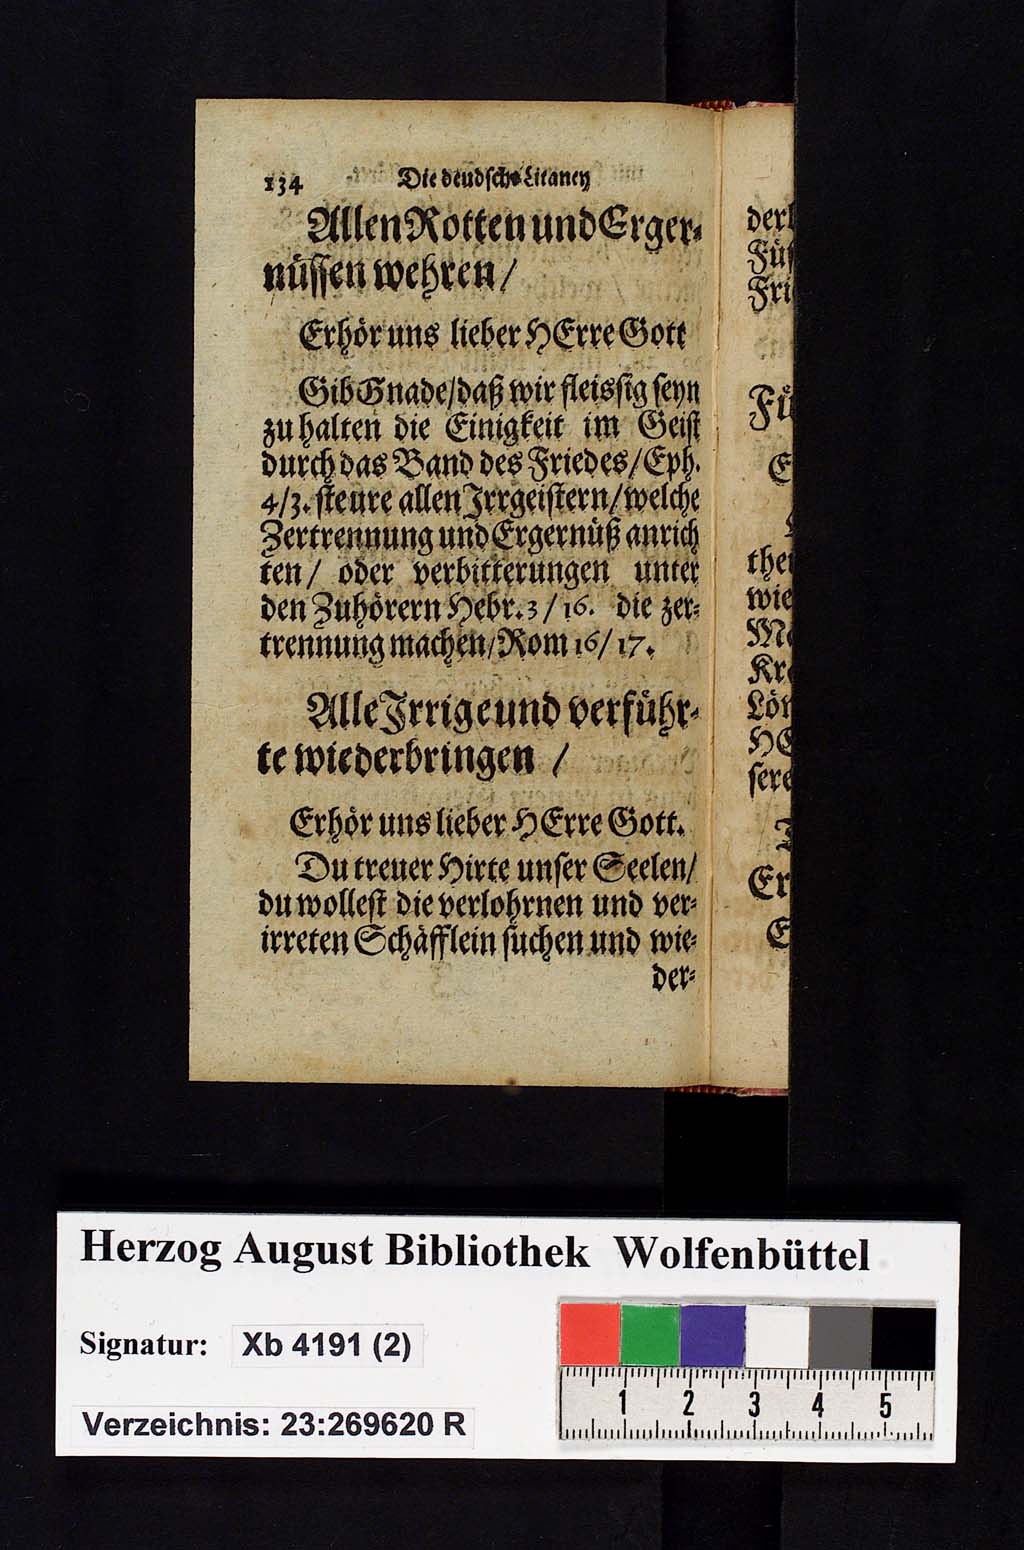 134 Die deudsche Litaney
Allen Rotten und Erger-
nüssen wehren /
Erhör uns lieber HErre Gott
Gib Gnade / daß wir fleissig seyn
zu halten die Einigkeit im Geist
durch das Band des Friedes / Eph.
4 / 3. steure allen Irrgeistern / welche
Zertrennung und Ergernüß anrich
ten / oder verbitterungen unter
den Zuhörern Hebr. 3 / 16. die zer-
trennung machen / Rom 16 / 17.
Alle Irrige und verführ-
te wiederbringen /
Erhör uns lieber HErre Gott.
Du treuer Hirte unser Seelen /
du wollest die verlohrnen und ver-
irreten Schäfflein suchen und wie-
der-
Fü
Fri
Fü
E
thei
wie
Kr
Löw
HE
sere
Er
E
Herzog August Bibliothek Wolfenbüttel
Signatur: Xb 4191 (2)
Verzeichnis: 23:269620 R
1 2 3 4 5